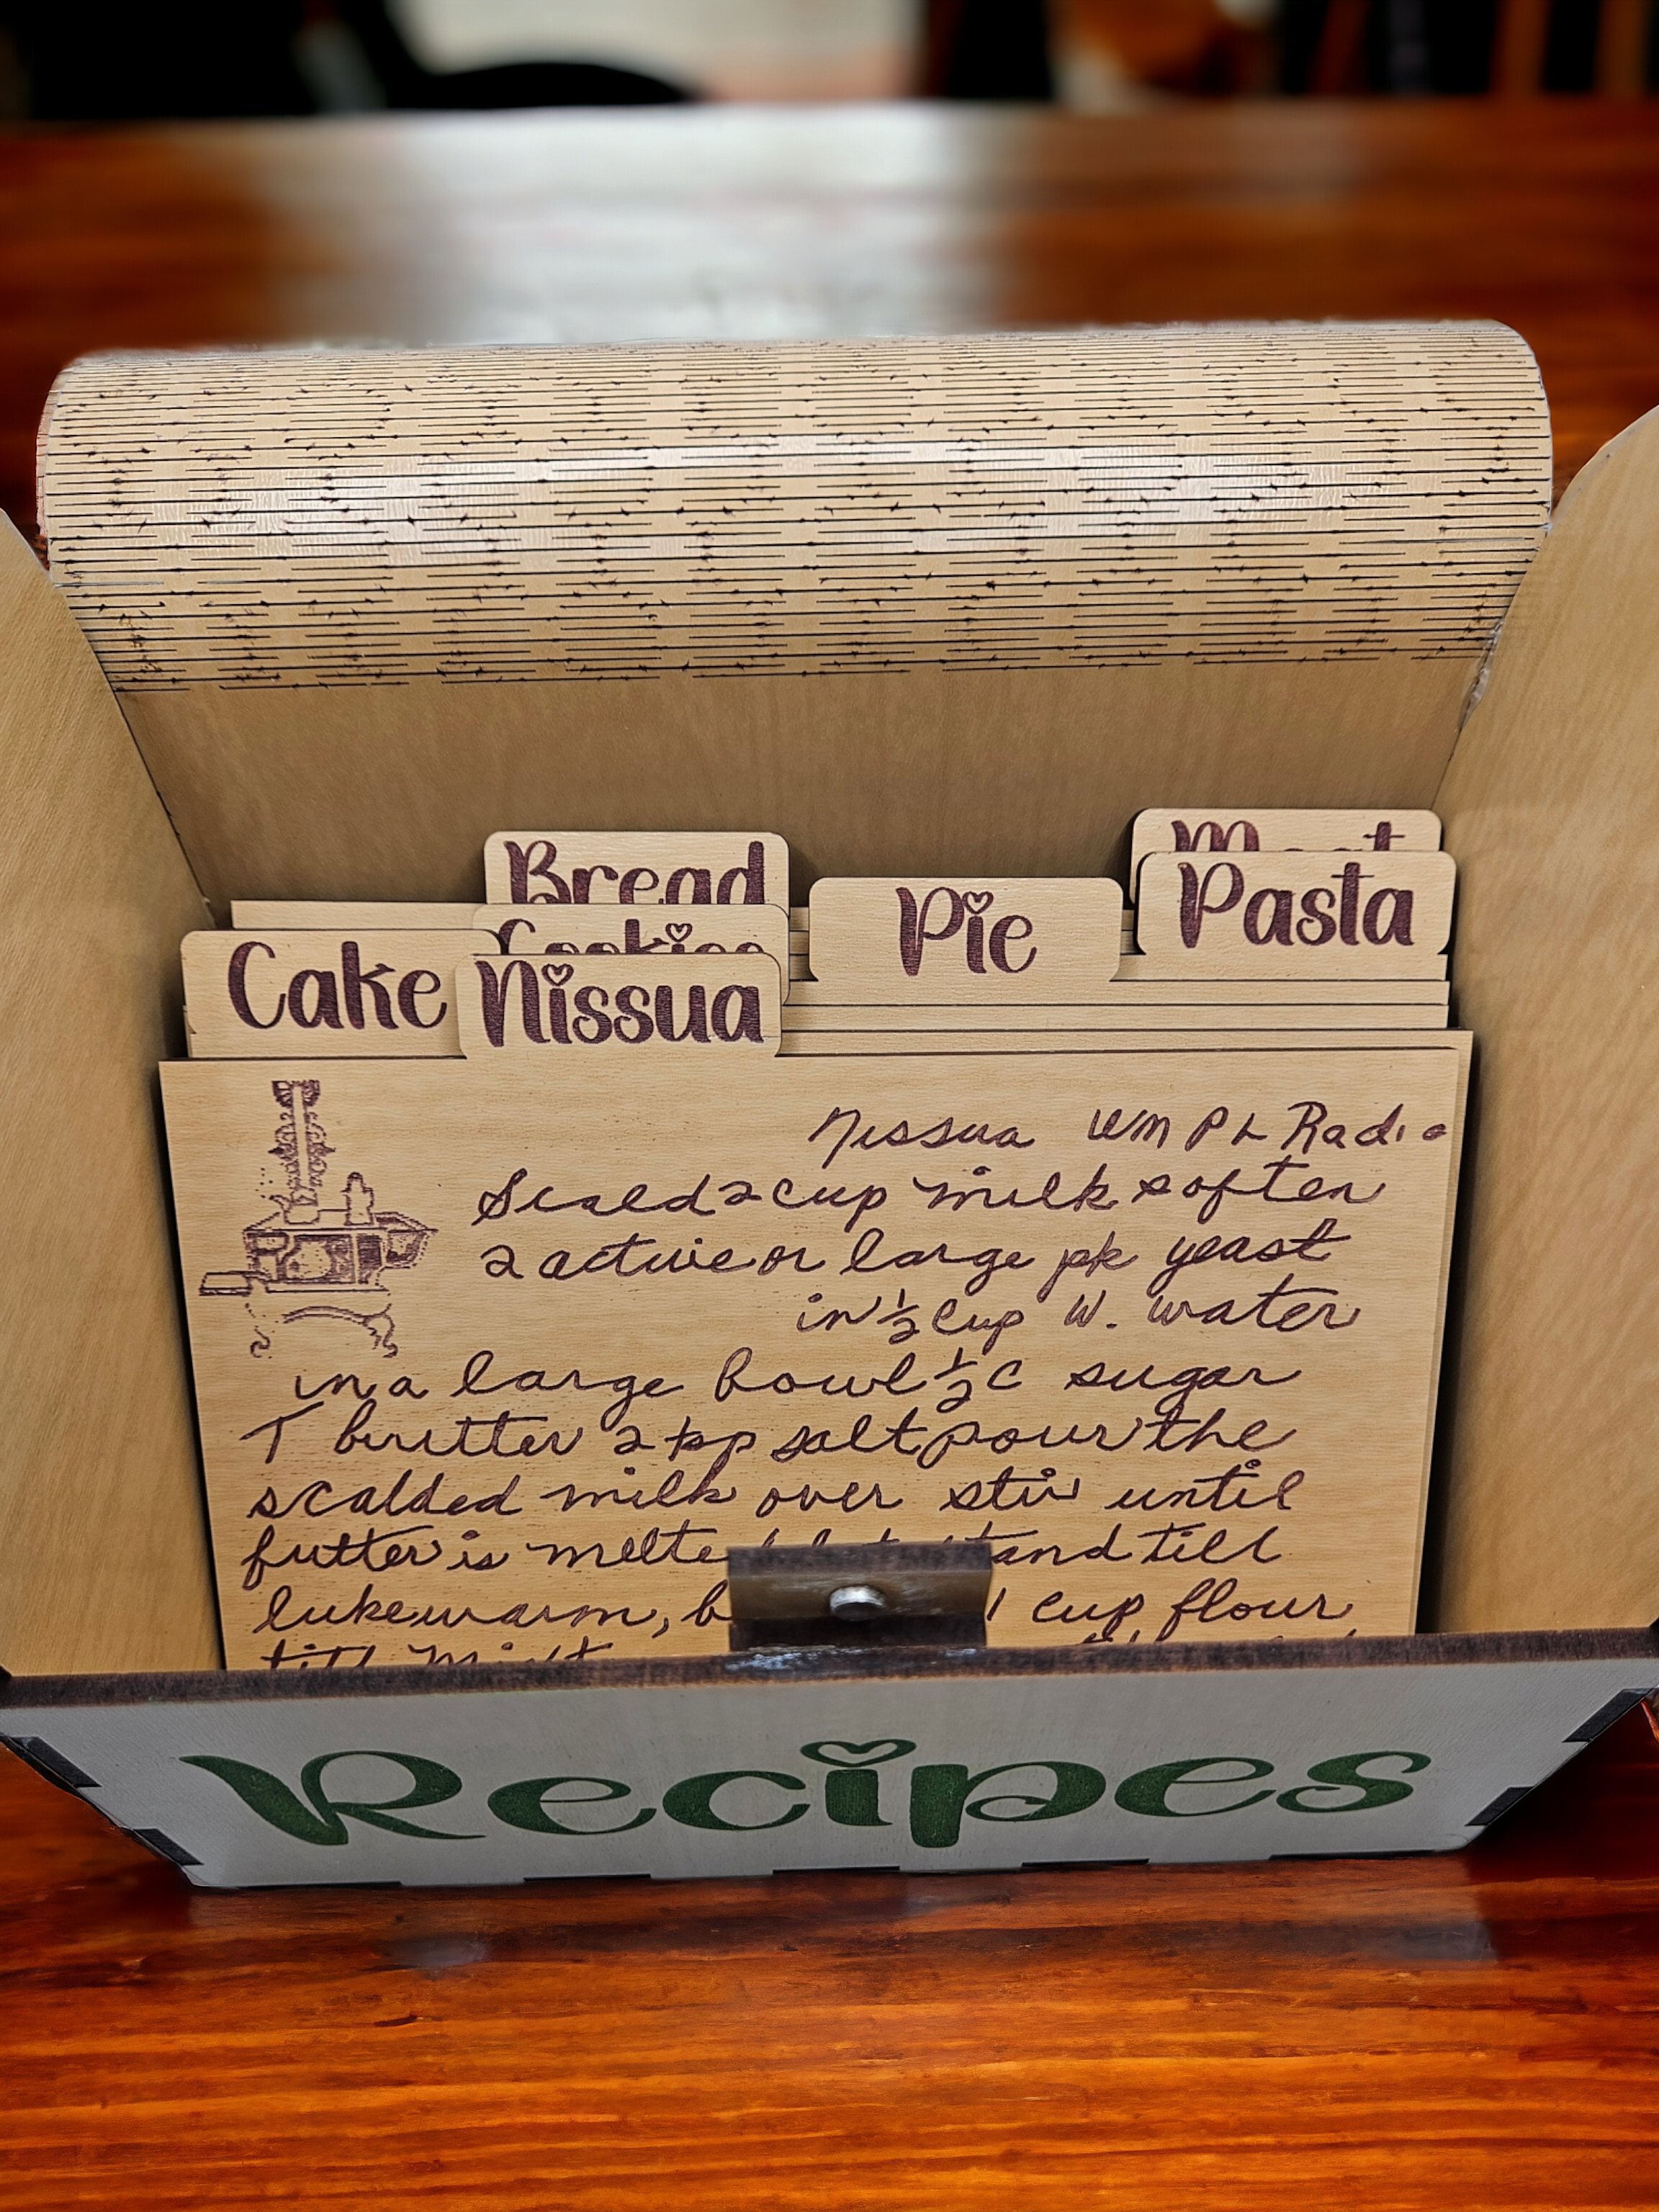 Bread
Meat
Pasta
Pie
Cookies
Cake
Nissua
Nissua WMPL Radio
Scald 2 cup milk soften
2 active or large pk yeast
in ½ cup W. water
in a large bowl ½ C sugar
T buutter 2 tsp salt pour the
scalded milk over stir until
butter is melted let stand till
lukewarm, 1 cup flour
till
Recipes